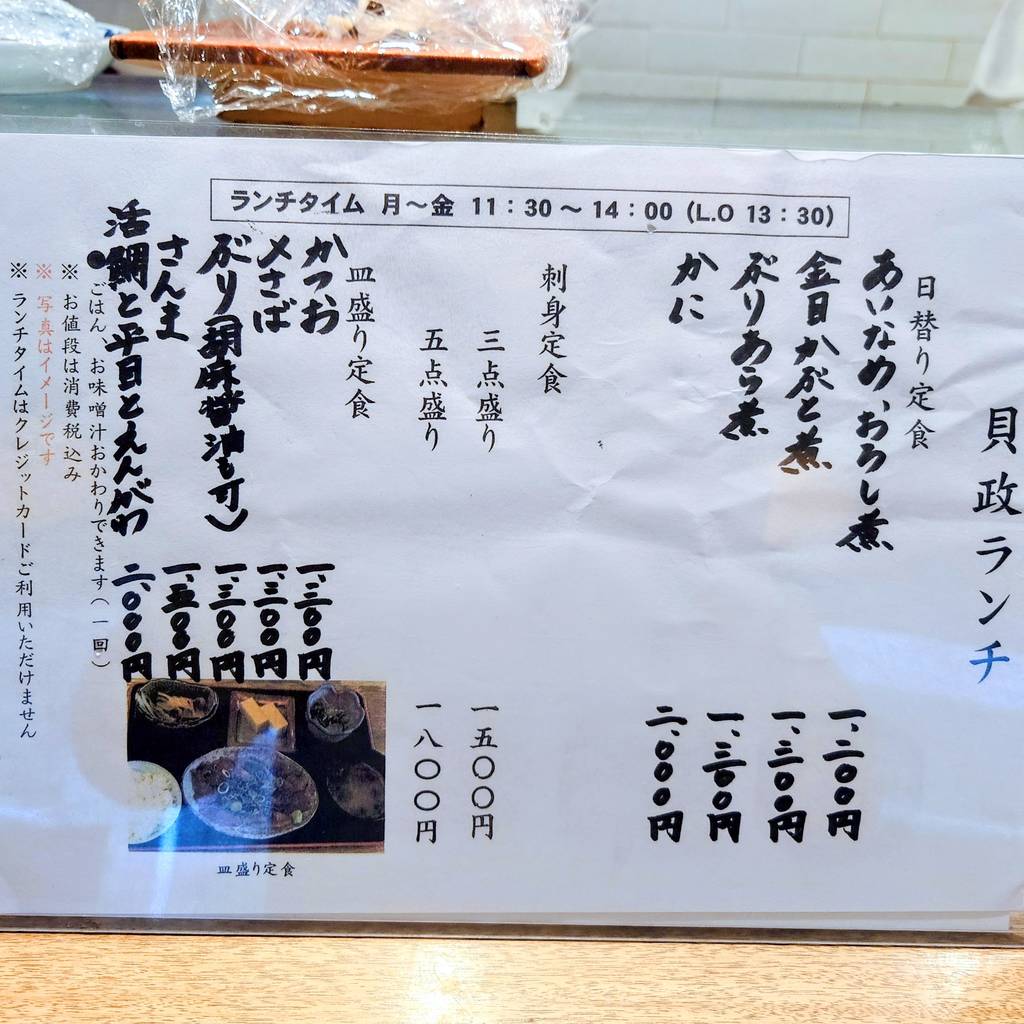 貝政ランチ
ランチタイム 月～金 11：30～14：00（L.O 13：30）
日替り定食
あいなめ、おろし煮 一、二〇〇円
金目かぶと煮 一、三〇〇円
ぶりあら煮 一、三〇〇円
かに 二、〇〇〇円
刺身定食
三点盛り 一五〇〇円
五点盛り 一八〇〇円
皿盛り定食
かつお 一、三〇〇円
〆さば 一、三〇〇円
ぶり（胡麻醤油も可） 一、三〇〇円
さんま 一、五〇〇円
活鯛と平目とえんがわ 二、〇〇〇円
●ごはん お味噌汁おかわりできます（一回）
※ お値段は消費税込み
※ 写真はイメージです
※ ランチタイムはクレジットカードご利用いただけません
皿盛り定食